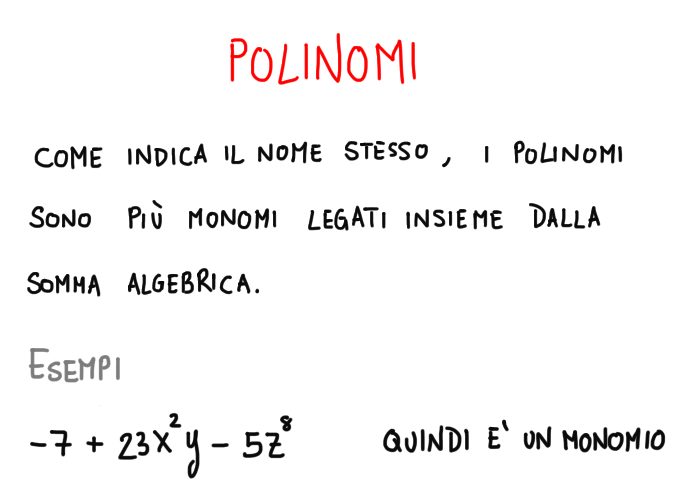 POLINOMI
COME INDICA IL NOME STESSO, I POLINOMI
SONO PIÙ MONOMI LEGATI INSIEME DALLA
SOMMA ALGEBRICA.
ESEMPI
-7 + 23x²y - 5z⁸ QUINDI E' UN MONOMIO